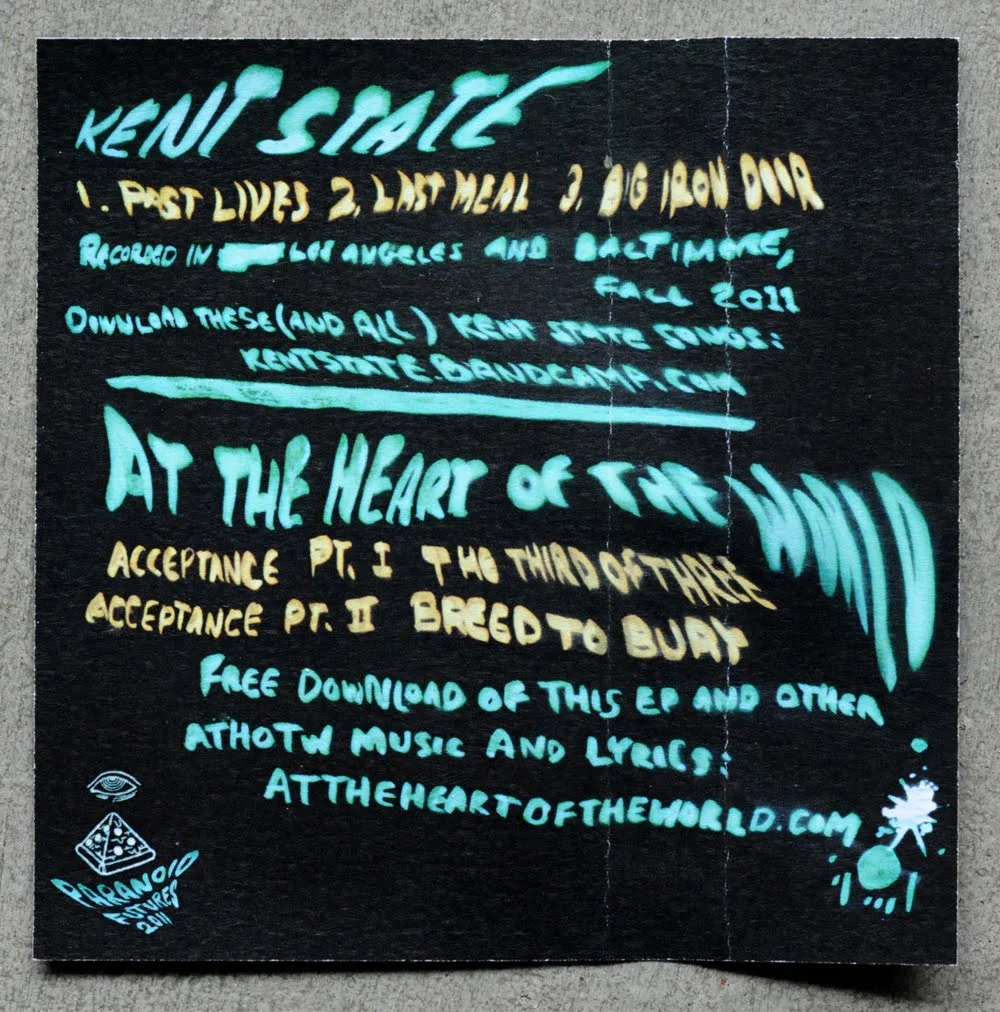 KENT STATE
1. PAST LIVES 2. LAST MEAL 3. BIG IRON DOOR
RECORDED IN LOS ANGELES AND BALTIMORE,
FALL 2011
DOWNLOAD THESE (AND ALL) KENT STATE SONGS:
KENTSTATE.BANDCAMP.COM
AT THE HEART OF THE WORLD
ACCEPTANCE PT. I THE THIRD OF THREE
ACCEPTANCE PT. II BREED TO BURY
FREE DOWNLOAD OF THIS EP AND OTHER
ATHOTW MUSIC AND LYRICS:
ATTHEHEARTOFTHEWORLD.COM
PARANOID
FUTURES
2011